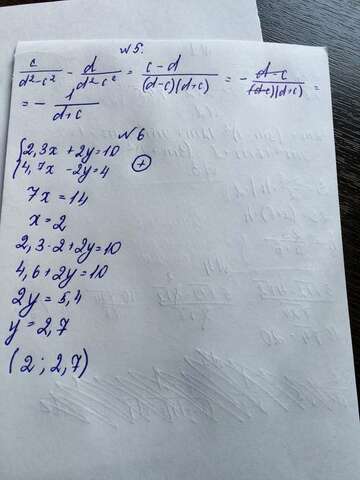 №5.
c/(d²-c²) - d/(d²-c²) = (c-d)/((d-c)(d+c)) = - (d-c)/((d-c)(d+c)) =
= - 1/(d+c)
№6
{2,3x + 2y = 10
{4,7x - 2y = 4 (+)
7x = 14
x = 2
2,3·2 + 2y = 10
4,6 + 2y = 10
2y = 5,4
y = 2,7
(2; 2,7)